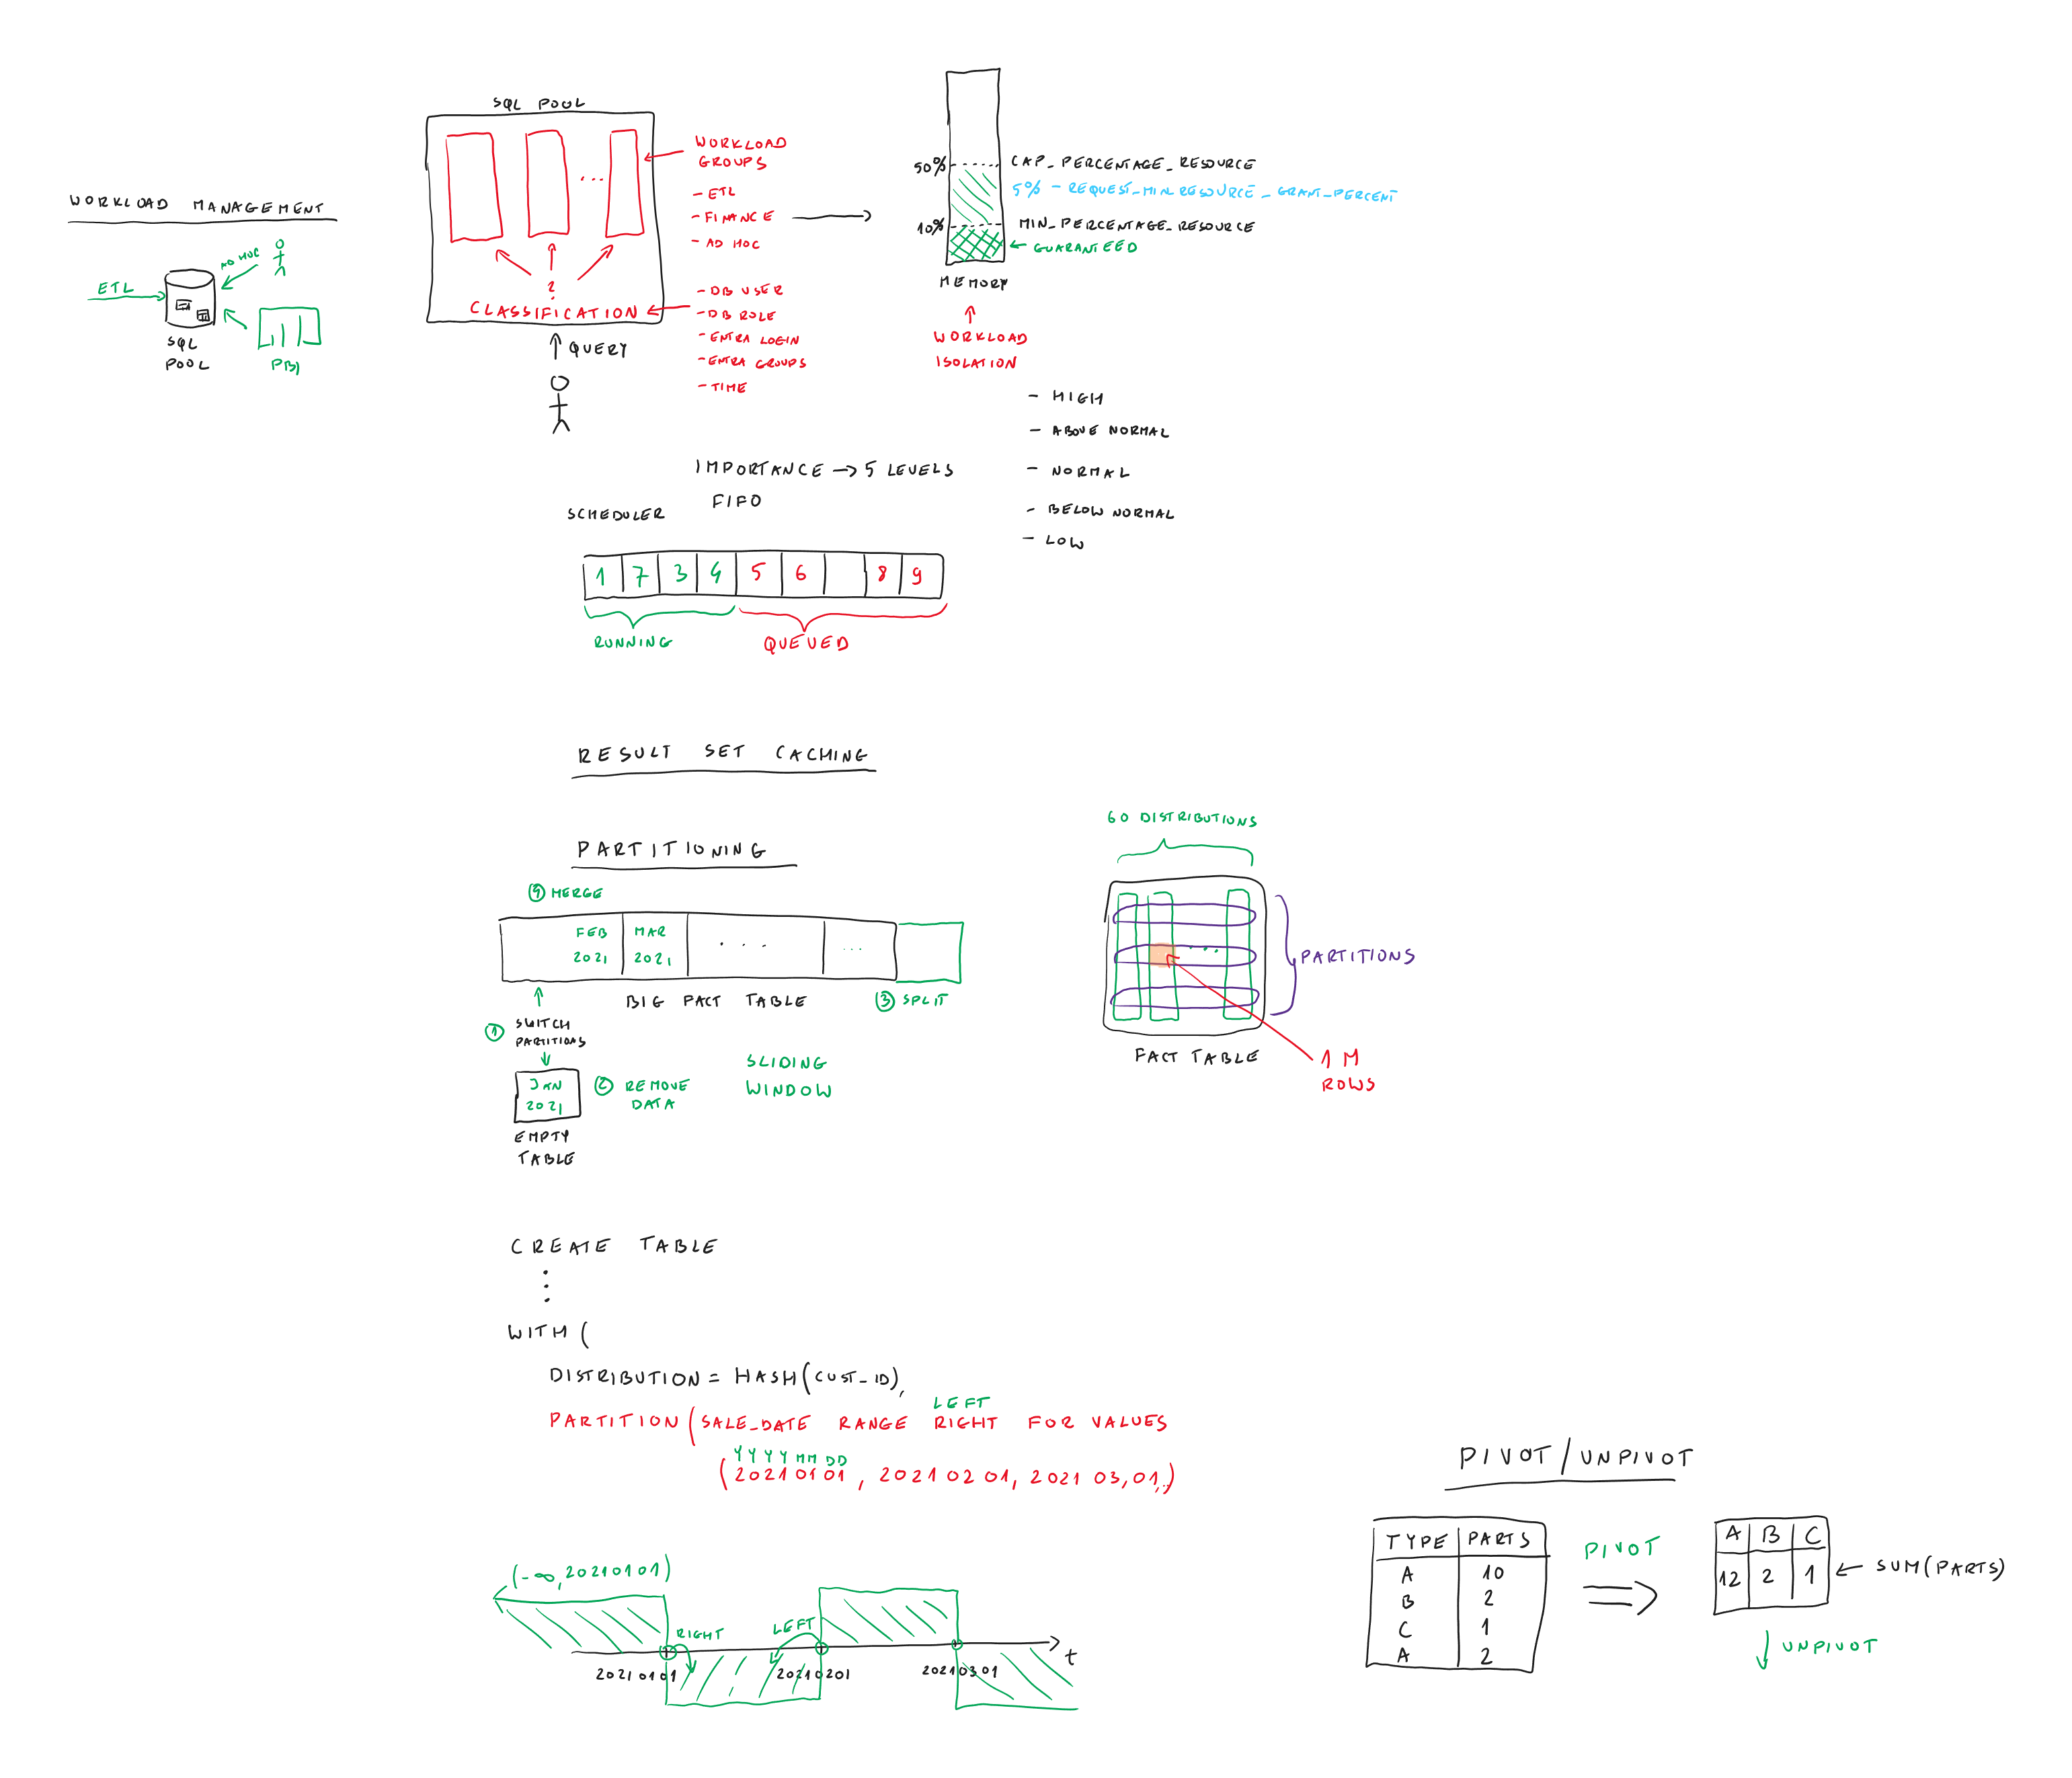 WORKLOAD MANAGEMENT
AD HOC
ETL
SQL
POOL
PBI
SQL POOL
...
?
CLASSIFICATION
QUERY
WORKLOAD
GROUPS
- ETL
- FINANCE
- AD HOC
- DB USER
- DB ROLE
- ENTRA LOGIN
- ENTRA GROUPS
- TIME
50%
CAP_PERCENTAGE_RESOURCE
5% - REQUEST_MIN_RESOURCE_GRANT_PERCENT
10%
MIN_PERCENTAGE_RESOURCE
GUARANTEED
MEMORY
WORKLOAD
ISOLATION
IMPORTANCE → 5 LEVELS
FIFO
- HIGH
- ABOVE NORMAL
- NORMAL
- BELOW NORMAL
- LOW
SCHEDULER
1 7 3 4 5 6 8 9
RUNNING
QUEUED
RESULT SET CACHING
PARTITIONING
④ MERGE
FEB
2021
MAR
2021
...
...
BIG FACT TABLE
③ SPLIT
① SWITCH
PARTITIONS
JAN
2021
② REMOVE
DATA
EMPTY
TABLE
SLIDING
WINDOW
60 DISTRIBUTIONS
...
PARTITIONS
FACT TABLE
1 M
ROWS
CREATE TABLE
WITH (
DISTRIBUTION = HASH(CUST_ID),
LEFT
PARTITION (SALE_DATE RANGE RIGHT FOR VALUES
YYYY MM DD
(2021 01 01, 2021 02 01, 2021 03,01,..)
(-∞, 2021 01 01)
RIGHT
LEFT
2021 01 01
2021 0201
2021 03 01
t
PIVOT/UNPIVOT
TYPE PARTS
A 10
B 2
C 1
A 2
PIVOT
A B C
12 2 1
SUM(PARTS)
UNPIVOT